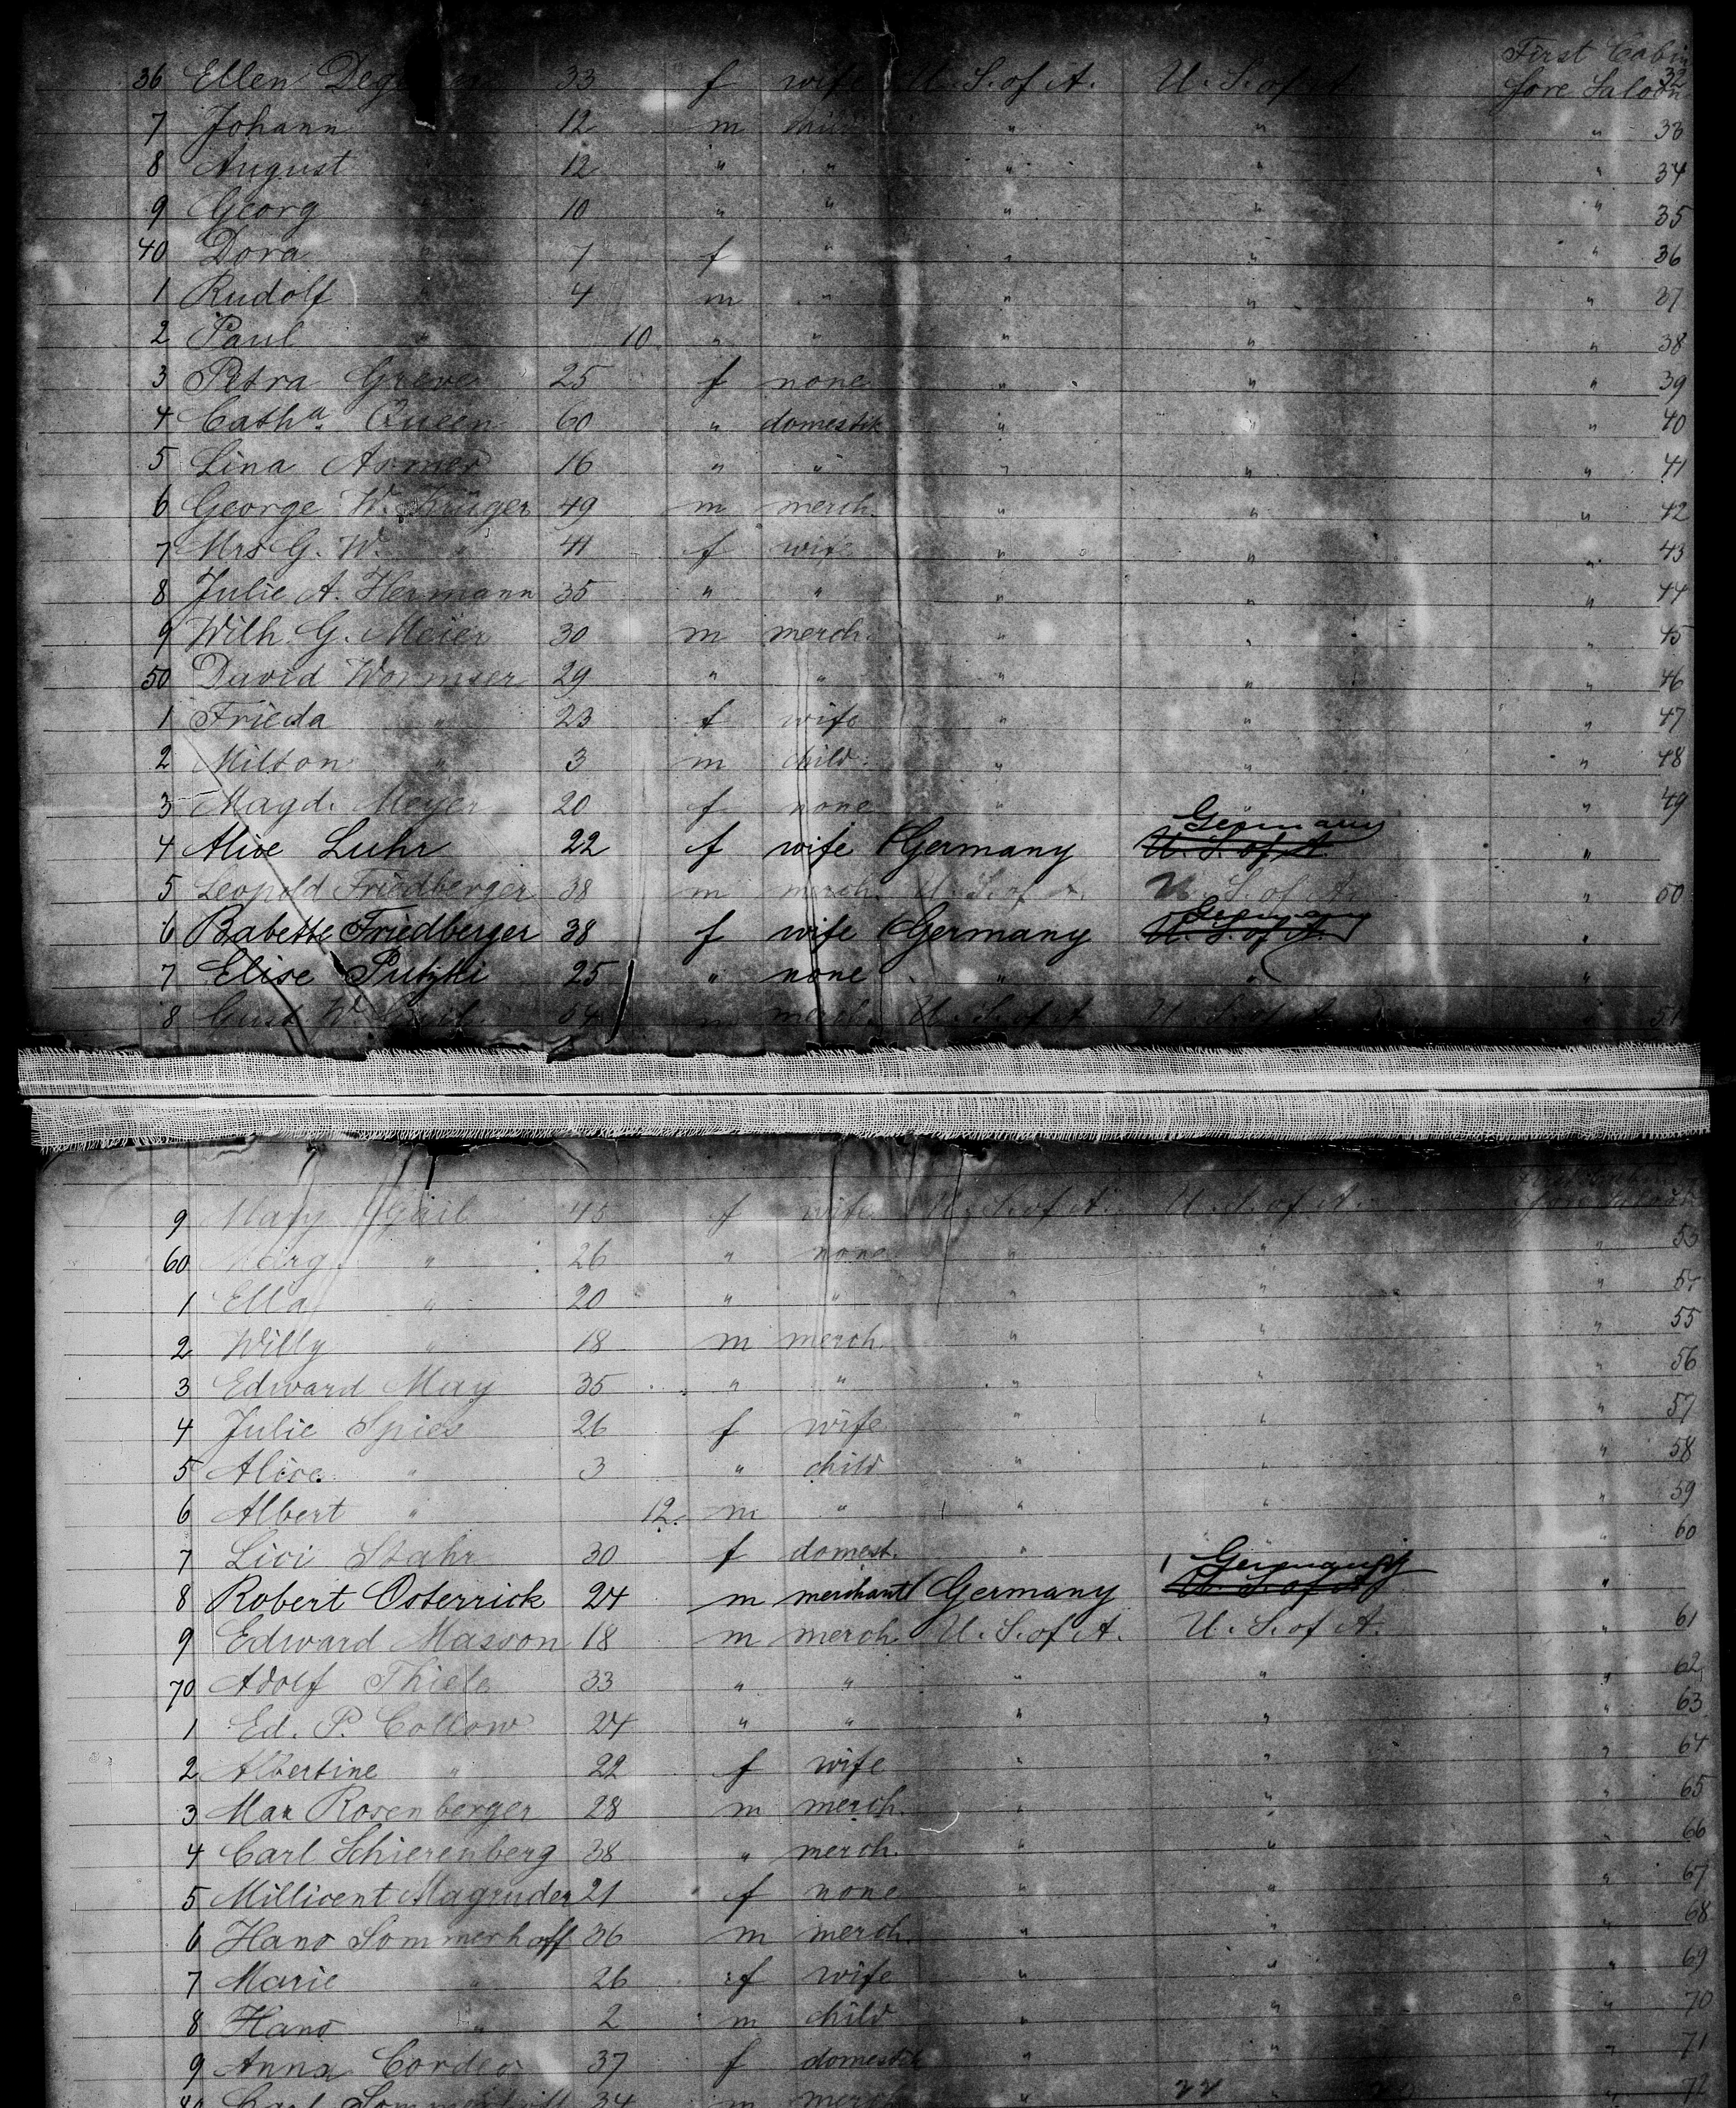 First Cabin
36 Ellen 33 f wife U. S. of A. U. S. of A. fore Saloon 32
7 Johann " 12 m child " " " 33
8 August " 12 " " " " " 34
9 Georg " 10 " " " " " 35
40 Dora " 7 f " " " " 36
1 Rudolf " 4 m " " " " 37
2 Paul " 10 " " " " " 38
3 Petra Greve 25 f none " " " 39
4 Cath.a Queen 60 " domestik " " " 40
5 Lina 16 " " " " " 41
6 George W. Krüger 49 m merch. " " " 42
7 Mrs G. W. " 41 f wife " " " 43
8 Julie A. Hermann 35 " " " " " 44
9 Wilh. G. Meier 30 m merch. " " " 45
50 David Wormser 29 " " " " " 46
1 Frieda " 23 f wife " " " 47
2 Milton " 3 m child " " " 48
3 Magd. Meyer 20 f none " " " 49
Germany
4 Alise Luhr 22 f wife Germany U. S. of A. "
5 Leopold Friedberger 38 m merch. U. S. of A. U. S. of A. " 50
Germany
6 Babette Friedberger 38 f wife Germany U. S. of A. "
7 Elise Putzki 25 " none " " "
8 Gust. W. Gail 54 m merch. U. S. of A. U. S. of A. " 51
9 Mary Gail 45 f wife U. S. of A. U. S. of A.
60 Marg. " 26 " none " " " 53
1 Ella " 20 " " " " " 54
2 Willy " 18 m merch. " " " 55
3 Edward May 35 " " " " " 56
4 Julie Spies 26 f wife " " " 57
5 Alise " 3 " child " " " 58
6 Albert " 12. m " " " " 59
7 Lisi Stahr 30 f domest. " " 60
Germany
8 Robert Osterrick 24 m merchant Germany U. S. of A. "
9 Edward Masson 18 m merch. U. S. of A. U. S. of A. " 61
70 Adolf Thiele 33 " " " " " 62
1 Ed. P. Collow 24 " " " " " 63
2 Albertine " 22 f wife " " " 64
3 Max Rosenberger 28 m merch. " " " 65
4 Carl Schierenberg 38 " merch. " " " 66
5 Millicent Magruder 21 f none " " " 67
6 Hans Sommerhoff 36 m merch. " " " 68
7 Marie " 26 f wife " " " 69
8 Hans " 2 m child " " " 70
9 Anna Cordes 37 f domestik " " " 71
80 Carl 34 m merch. " " " 72